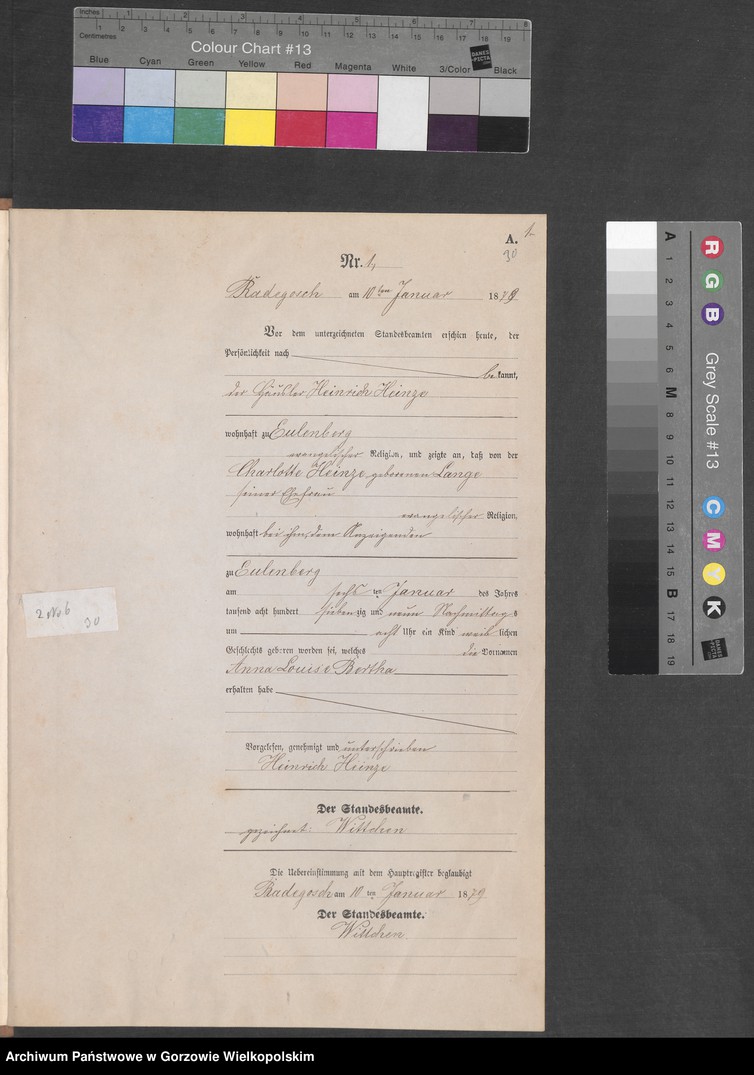 Inches 1 2 3 4 5 6 7 8
Centimetres 1 2 3 4 5 6 7 8 9 10 11 12 13 14 15 16 17 18 19
Colour Chart #13
DANES
PICTA
Blue Cyan Green Yellow Red Magenta White 3/Color Black
A. 1
30
Nr. 1,
Radegosch am 10ten Januar 1879
Vor dem unterzeichneten Standesbeamten erschien heute, der
Persönlichkeit nach
bekannt,
der Häusler Heinrich Heinze
wohnhaft zu Eulenberg
evangelischer Religion, und zeigte an, daß von der
Charlotte Heinze geborenen Lange
seiner Ehefrau
evangelischer Religion,
wohnhaft bei ihm, dem Anzeigenden
zu Eulenberg
am sechsten Januar des Jahres
tausend acht hundert siebenzig und neun Nachmittags
um acht Uhr ein Kind weiblichen
Geschlechts geboren worden sei, welches die Vornamen
Anna Louise Bertha
erhalten habe
Vorgelesen, genehmigt und unterschrieben
Heinrich Heinze
Der Standesbeamte.
gezeichnet: Wittchen
Die Uebereinstimmung mit dem Hauptregister beglaubigt
Radegosch am 10ten Januar 1879
Der Standesbeamte.
Wittchen
30
A 1 2 3 4 5 6 M 8 9 10 11 12 13 14 15 B 17 18 19
R G B
Grey Scale #13
C M Y K
DANES
PICTA
Archiwum Państwowe w Gorzowie Wielkopolskim